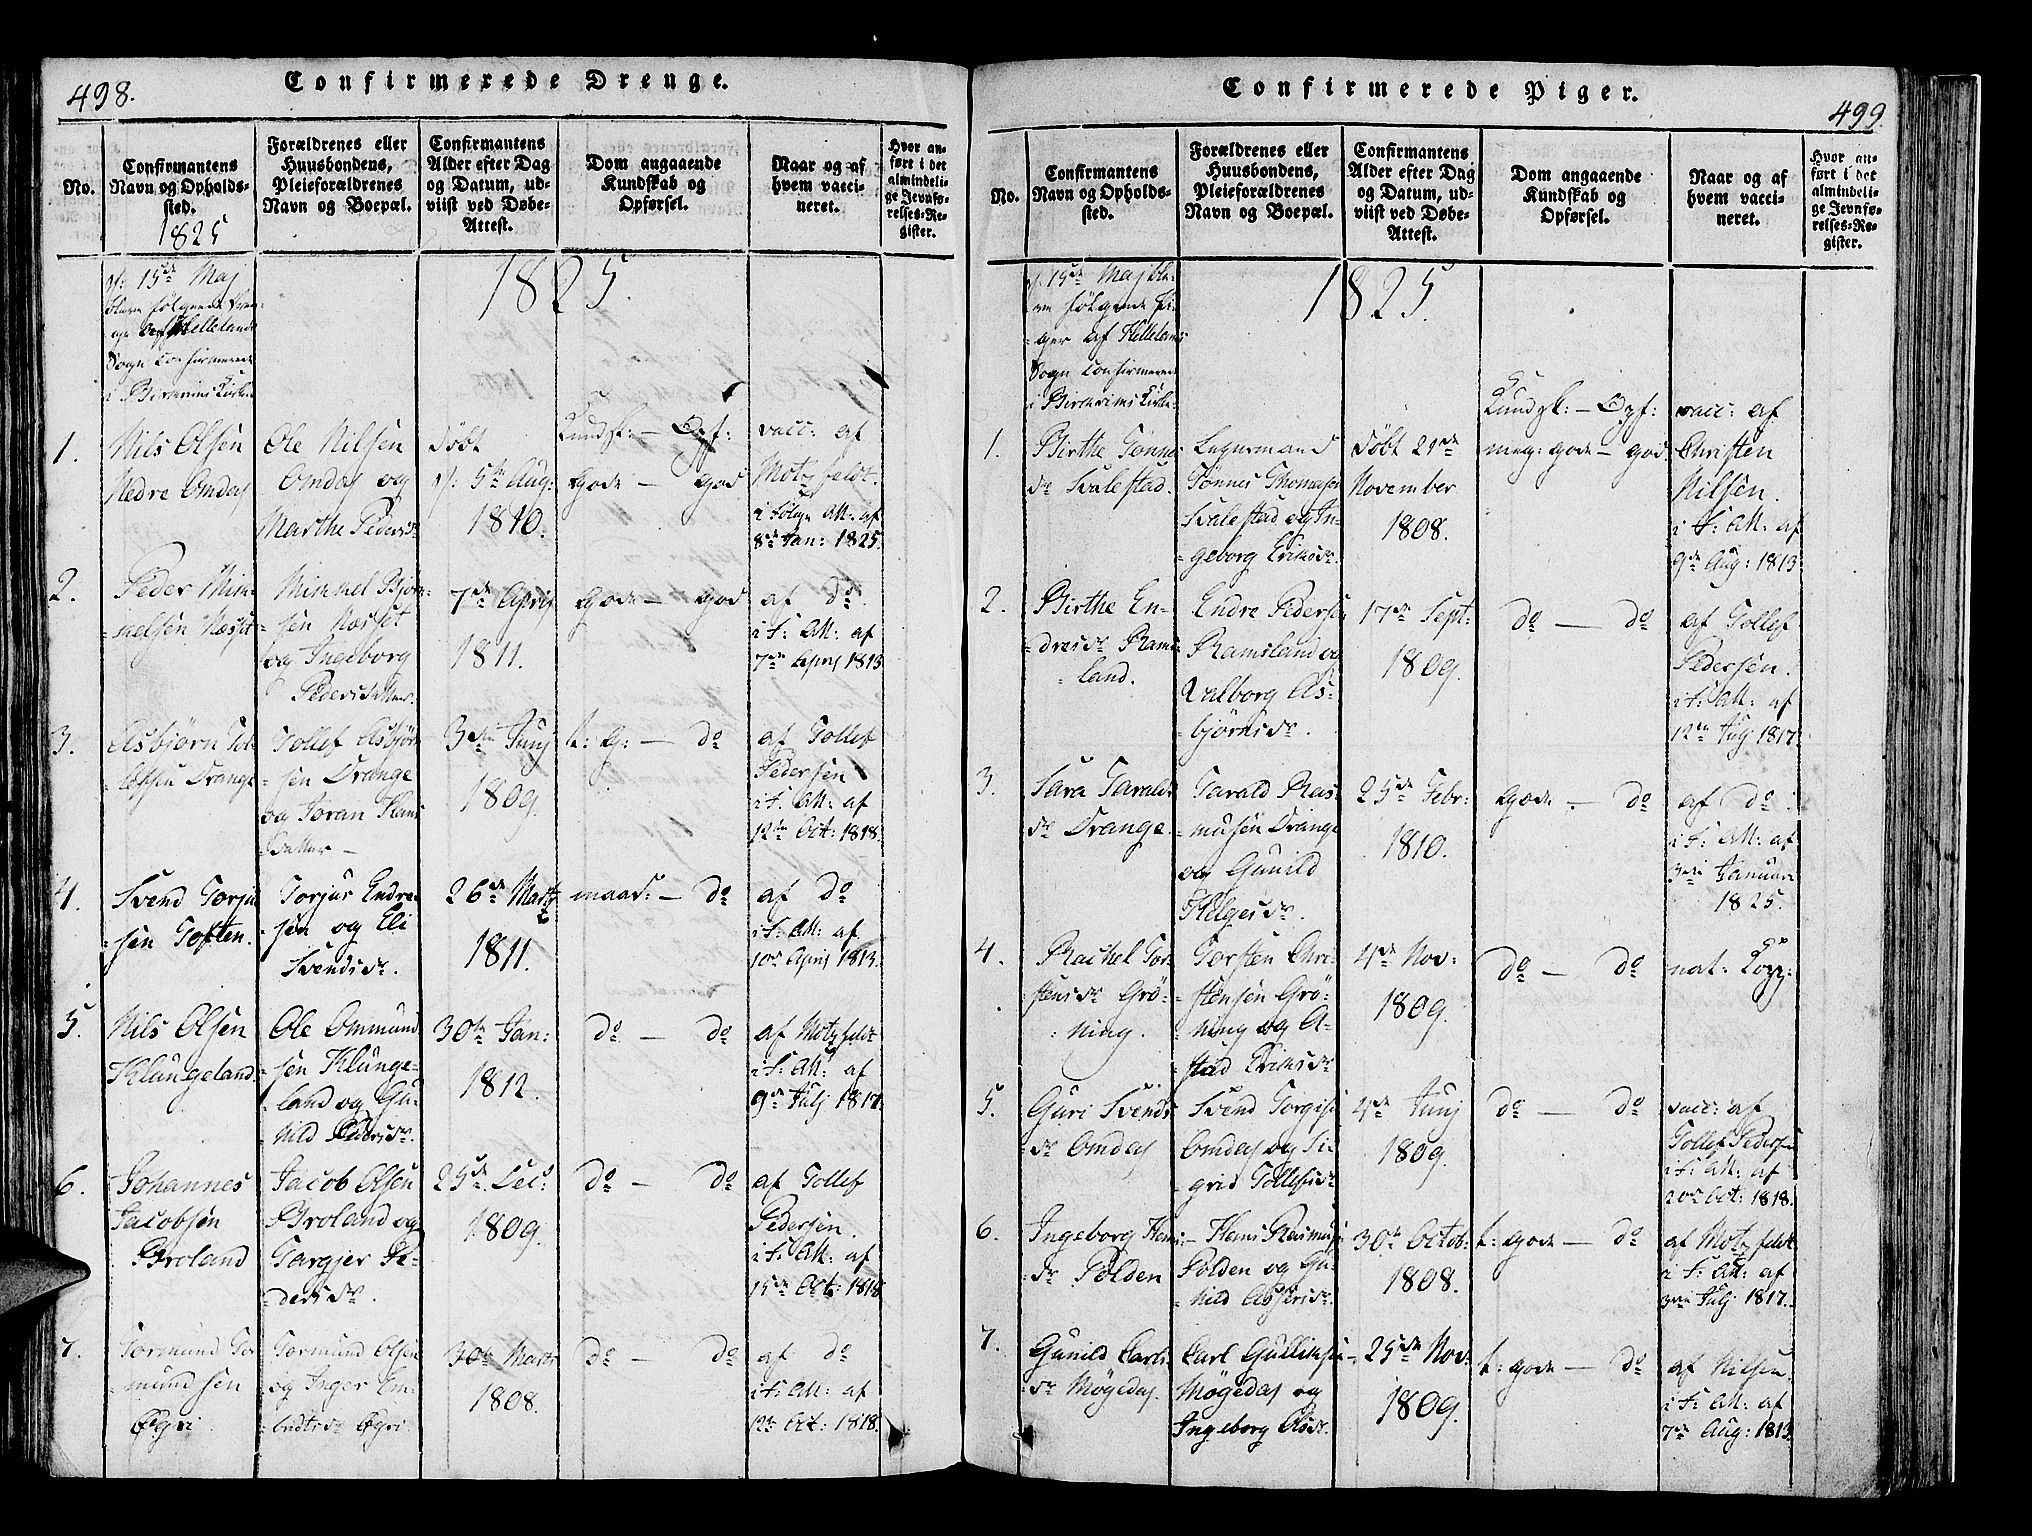 498.
Confirmerede Drenge.
No.
Confirmantens
Navn og Opholds-
sted.
1825
Forældrenes eller
Huusbondens,
Pleieforældrenes
Navn og Boepæl.
Confirmantens
Alder efter Dag
og Datum, ud-
viist ved Døbe-
Attest.
Dom angaaende
Kundskab og
Opførsel.
Naar og af
hvem vacci-
neret.
Hvor an-
ført i det
almindeli-
ge Jevnfø-
relses-Re-
gister.
1825.
15de Maj
bleve følgende Dren-
ge af Hellelands
Sogn confirmerede
i Kirken
1.
Nils Olsen
Nedre Omdal
Ole Nilsen
Omdal og
Marthe Peders dr
døbt
d: 5te Aug:
1810.
Kundsk: — Opf:
gode — god
vacc: af
Motzfeldt.
i følge Att: af
8de Jan: 1825.
2.
Peder Mim-
melsen Næsset
Mimmel Bjørn-
sen Næsset
og Ingeborg
Pedersdatter.
7de April
1811.
gode — god
af do.
i f: Att: af
7de April 1813
3.
Asbjørn Tol-
lefsen Drange
Tollef Asbjørn-
sen Drange
og Joran Hans
datter —
3die Junj
1809.
t: g: — do
af Tollef
Pedersen
i f: Att: af
12te Oct: 1818.
4.
Svend Torju-
sen Toften.
Torjus Endre-
sen og Eli
Svends dr.
26de Marts
1811.
maad: — do
af do
i f: Att: af
10de April 1813.
5.
Nils Olsen
Klungeland.
Ole Ommund-
sen Klunge-
land og Gu-
nild Peders dr.
30te Jan:
1812.
do — do
af Motzfeldt
i f: Att: af
9de Julj 1817.
6.
Johannes
Jacobsen
Broland
Jacob Olsen
Broland og
Targjer Pe-
ders dr.
25de Dec:
1809.
do — do
af Tollef
Pedersen.
i f: Att: af
15de Oct: 1818
7.
Tormund Tor-
mundsen
Øgri
Tormund Olsen
og Inger Em-
Øgri.
30te Marts
1808.
do — do
af do
i f: Att: af
12te Oct: 1818.
Confirmerede Piger.
499.
No.
Confirmantens
Navn og Opholds-
sted.
Forældrenes eller
Huusbondens,
Pleieforældrenes
Navn og Boepæl.
Confirmantens
Alder efter Dag
og Datum, ud-
viist ved Døbe-
Attest.
Dom angaaende
Kundskab og
Opførsel.
Naar og af
hvem vacci-
neret.
Hvor an-
ført i det
almindeli-
ge Jevnfø-
relses-Re-
gister.
1825.
d: 15de Maj ble-
ve følgende Pi-
ger af Hellelands
Sogn confirmerede
i Kirke:
1.
Birthe Tønnes
dr Svalestad.
Legusmand
Tønnes Thomasen
Svalestad og In-
geborg Eriks dr.
døbt 21de
November
1808.
Kundsk: — Opf:
meg: gode — god
vacc: af
Christen
Nilsen.
i f: Att: af
9de Aug: 1813
2.
Birthe En-
dres dr Rams-
land.
Endre Pedersen
Ramsland og
Valborg As-
bjørns dr.
17de Sept:
1809.
do — do
af Tollef
Pedersen.
i f: Att: af
12te Julj 1817.
3.
Sara Taralds
dr Drange.
Tarald Ras-
musen Drange
og Gunild
Helges dr.
25de Febr:
1810.
gode — do
af do.
i f: Att: af
3die Januar
1825.
4.
Rachel Tor-
stens dr Grø-
ning.
Torsten Chri-
stensen Grø-
ning og A-
Eriks dr
4de Nov:
1809.
do — do
nat: Kopp:
5.
Guri Svends
dr Omdal
Svend Torgis
Omdal og Si-
grid Tollefs dr
4de Junj
1809.
do — do
vacc: af
Tollef Pedersen
i f: Att: af
20de Oct: 1818.
6.
Ingeborg Hans
dr Polden
Hans Rasmus
Polden og Gu-
nild Assers dr.
30te Octob:
1808.
t: gode — do
af Motzfeldt
i f: Att: af
3die Julj 1817.
7.
Gunild Carls
dr Møgedal.
Carl Gullik
Møgedal og
Ingeborg Ols dr.
25de Nov:
1809.
t: gode — do
af Nilsen.
i f: Att: af
7de Aug: 1813.